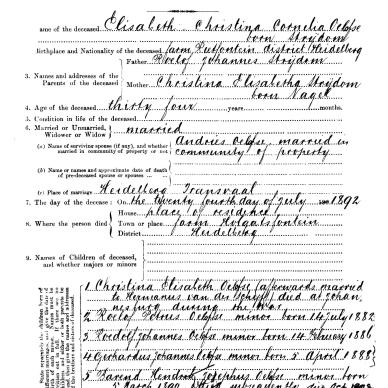 ame of the deceased Elisabeth Christina Cornelia Oelofse
born Strydom
Birthplace and Nationality of the deceased farm Rietfontein district Heidelberg
Father Roelof Johannes Strydom
3. Names and addresses of the
Parents of the deceased
Mother Christina Elisabetha Strydom
born Nagel
4. Age of the deceased thirty four years months.
5. Condition in life of the deceased
6. Married or Unmarried, married
Widower or Widow
(a) Name of surviving spouse (if any), and whether Andries Oelofse, married in
married in community of property or not community of property
(b) Name or names and approximate date of death
of pre-deceased spouse or spouses
(c) Place of marriage Heidelberg Transvaal
7. The day of the decease: On the twenty fourth day of July 1892
House place of residence
8. Where the person died Town or place farm
District Heidelberg
9. Names of Children of deceased,
and whether majors or minors
1 Christina Elisabeth Oelofse (afterwards married
to Hermanus van der Schyff) died at Johan-
nesburg during the war
2 Roelof Petrus Oelofse minor born 14 July 1882
3 Roelof Johannes Oelofse minor born 14 February 1886
4 Gerhardus Johannes Oelofse minor born 5 April 1888
5 Barend Hendrik Josephus Oelofse minor born
March 1890